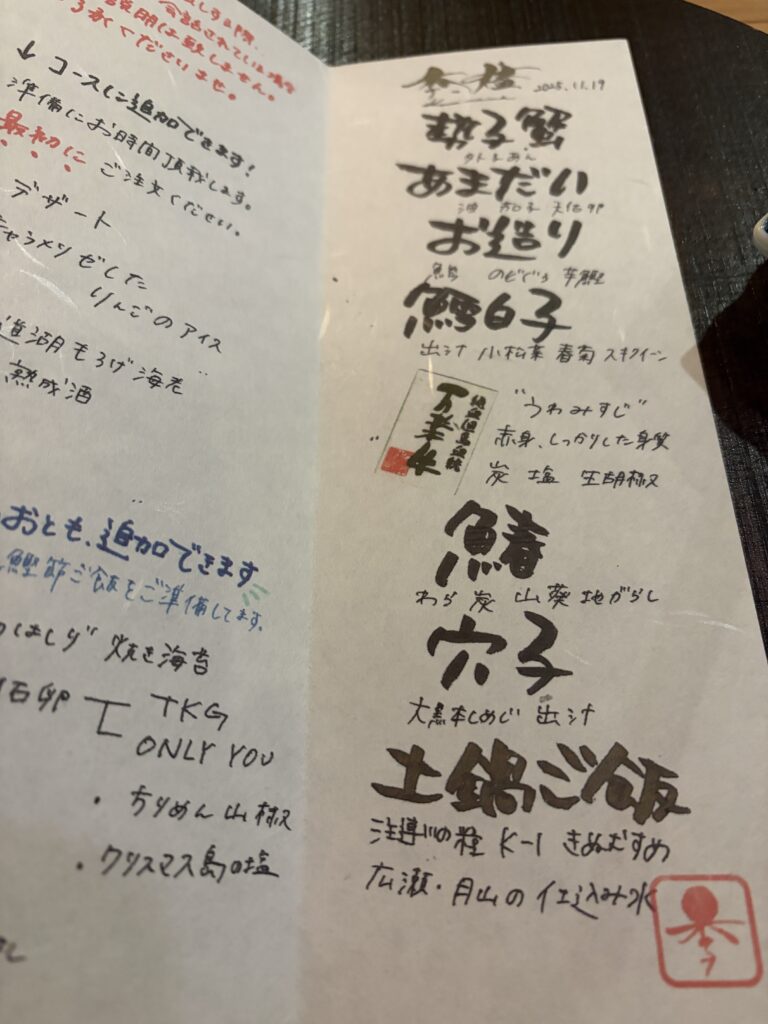 説明は致しません。
くださいませ。
↓コースに追加できます!
準備にお時間頂戴します。
最初に ご注文ください。
デザート
キャラメリゼした
りんごのアイス
道湖もろげ海老
熟成酒
おとも、追加できます
鰹節ご飯をご準備してます。
焼き海苔
卵 TKG
ONLY YOU
・ちりめん山椒
・クリスマス島の塩
2025.11.19
勢子蟹
外子あん
あまだい
茄子
お造り
のどぐろ
鱈白子
出汁 小松菜 春菊 スキクイーン
純血但馬血統
万葉牛
"うわみすじ"
赤身、しっかりした身質
炭 塩 生胡椒
鰆
わら 炭 山葵 地がらし
穴子
大黒本しめじ 出汁
土鍋ご飯
K-1 きぬむすめ
広瀬・月山の仕込み水